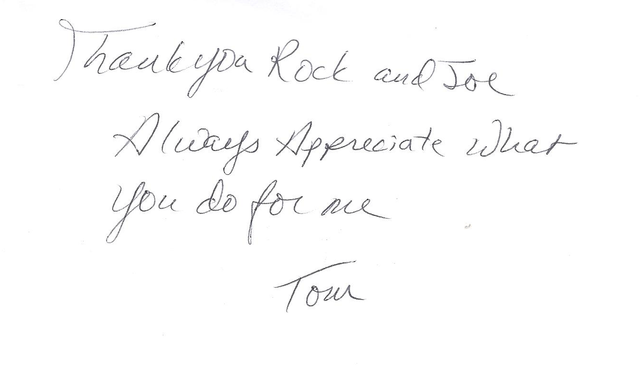 Thank you Rock and Joe
Always Appreciate What
You do for me
Tom